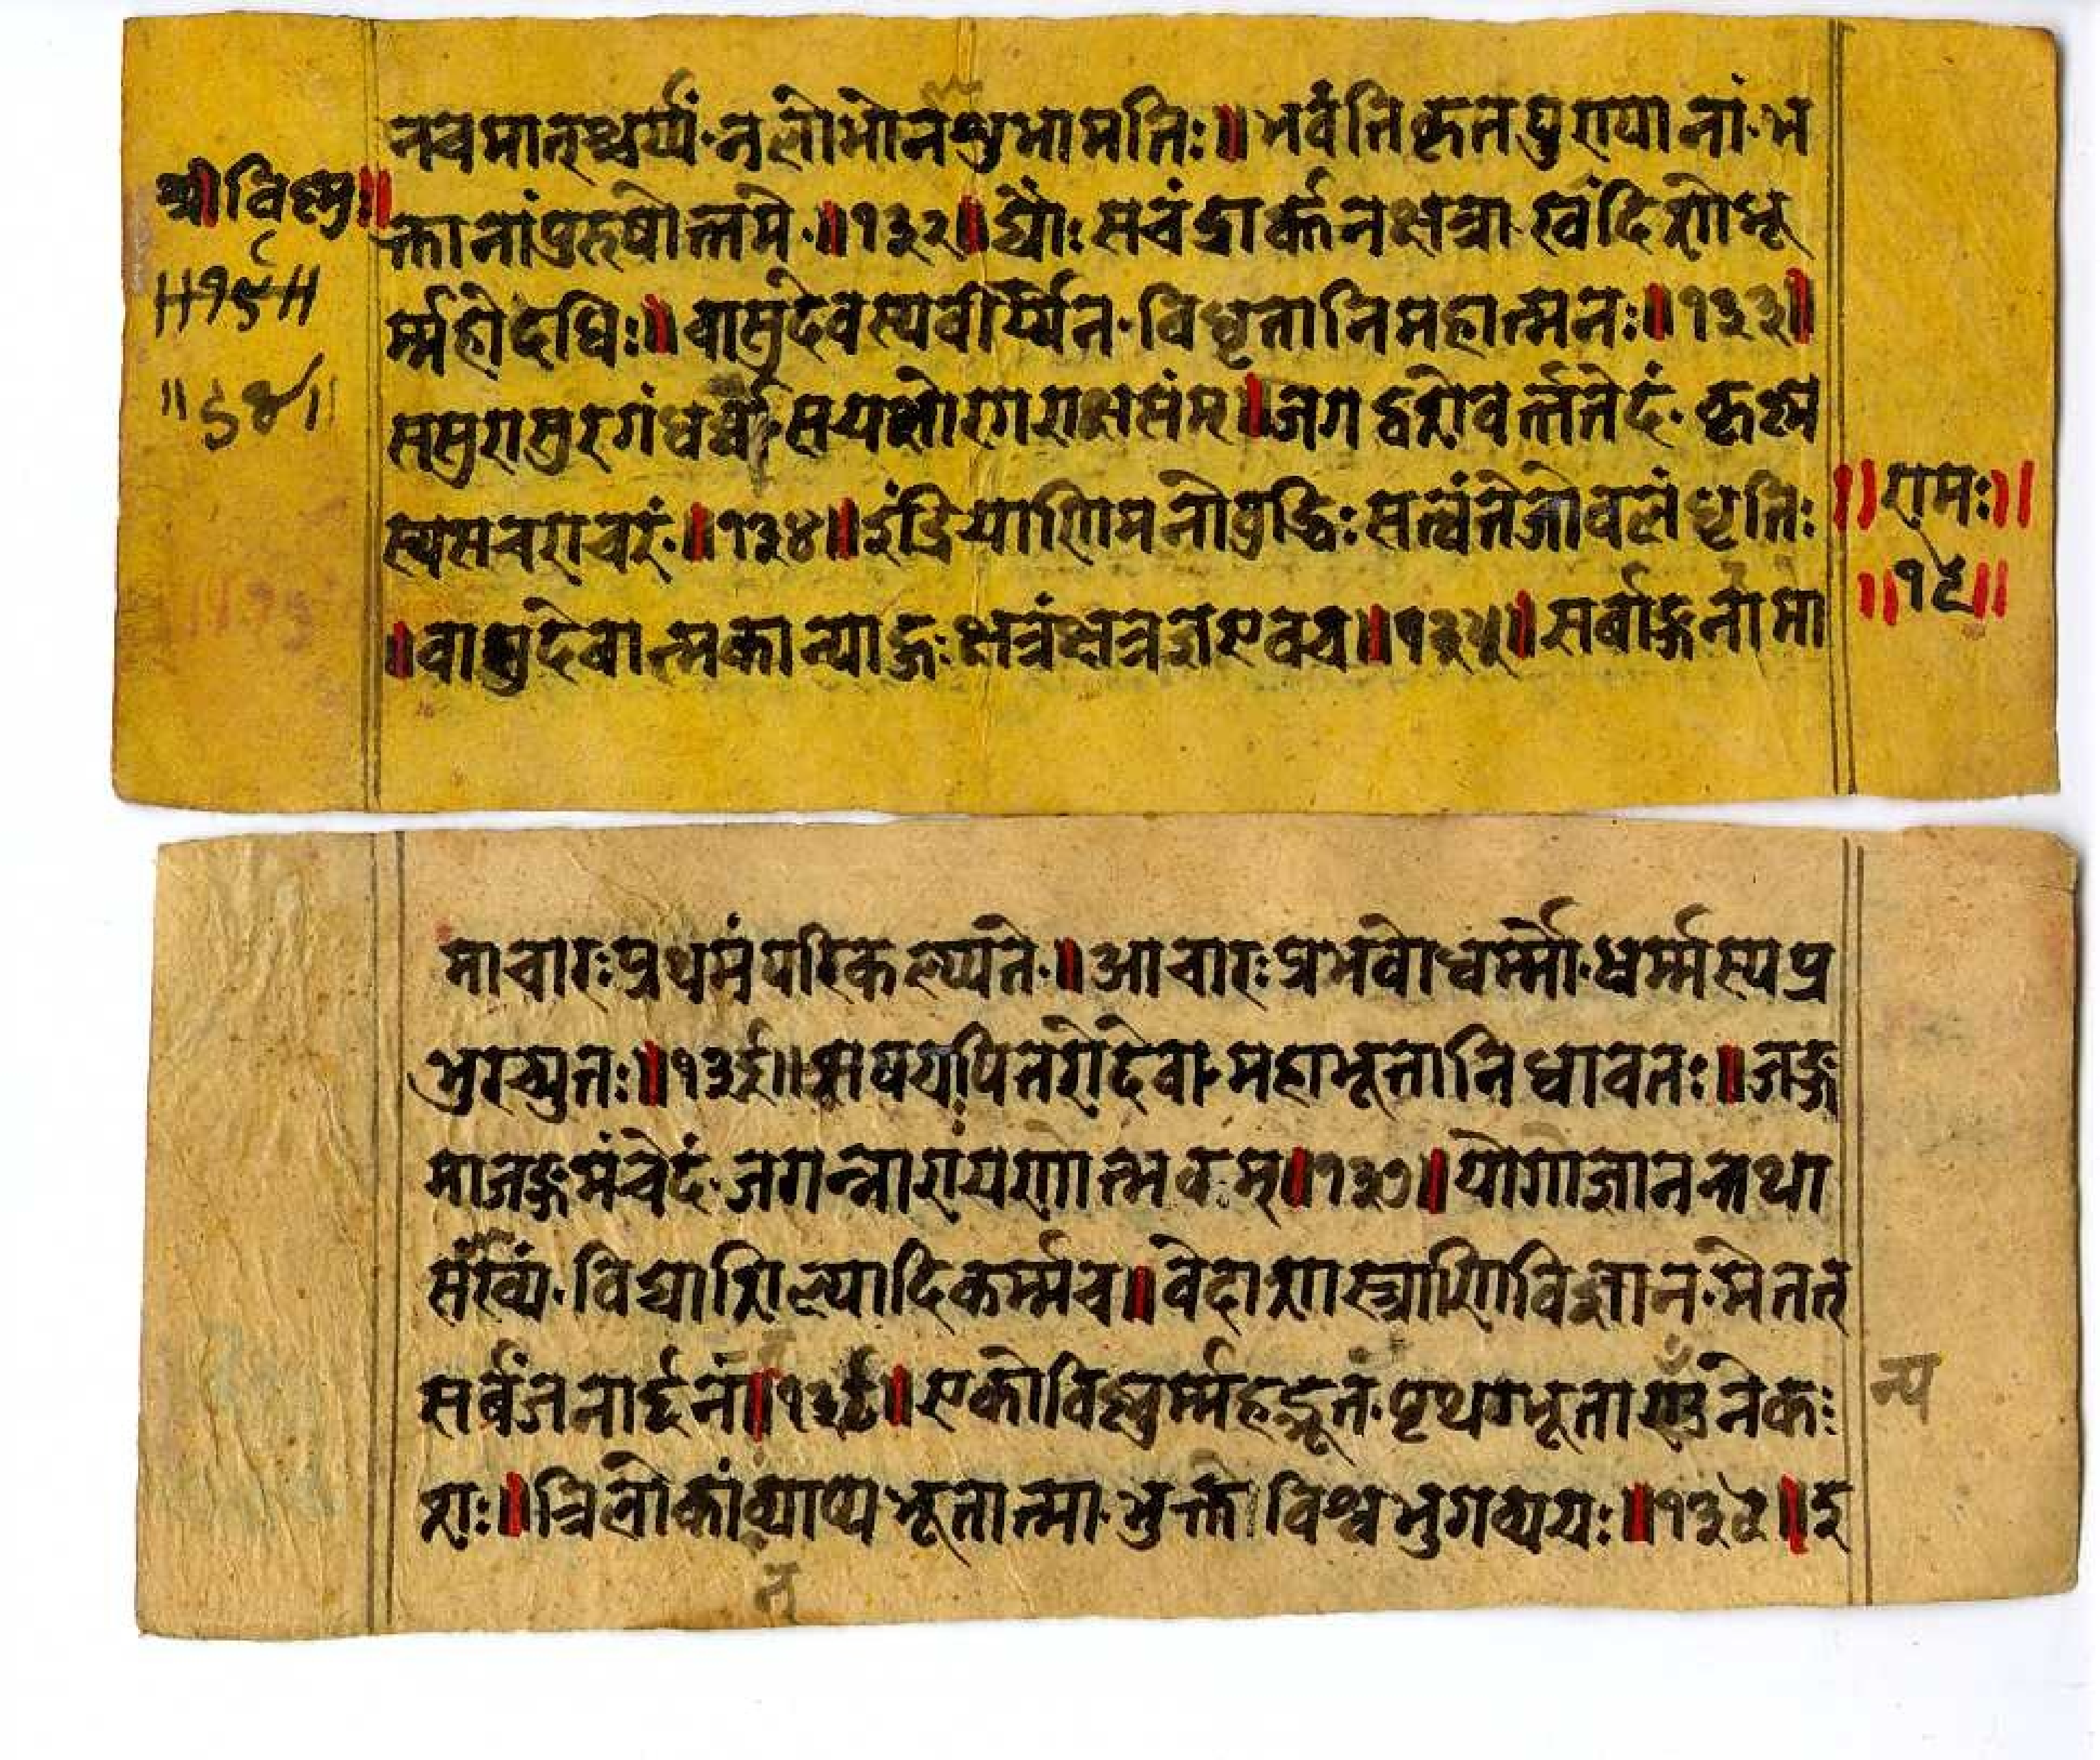 श्रीविष्णुः॥
॥१९॥
॥ ६४ ॥
नचमात्श्चर्य्यं·नलोभोनश्रुभामतिः॥भवंतिकृतपुरायानां·भ
क्तानांपुरुषोत्तमे·॥१३२॥द्यौः सचंद्रार्क्कनक्षत्रा·खंदिशोभू
र्म्महोदधिः॥वासुदेवस्यवीर्य्येन·विधृतानिमहात्मनः॥१३३॥
ससुरासुरगंधर्व्वं·सयक्षोरगराक्षसंम॥जगद्वशेवर्त्ततेदं·कृष्ण
स्यसचराचरं·॥१३४॥इंद्रियाणिमनोवुद्धिः सत्वंतेजोवलं धृतिः
॥वाशुदेवात्मकान्याहुः क्षत्रंक्षत्रज्ञएवच॥१३५॥सर्वाङ्गनामा
॥रामः॥
॥१९॥
माचारःप्रथमंपरिकल्प्यते·॥आचारःप्रभवोधर्म्मो·धर्म्मस्यप्र
भुरच्युतः॥१३६॥ऋषयःपितरोदेवा·महाभूतानिधावतः॥जङ्ग
माजङ्गमंचेदं·जगन्नारायणोत्भवम्॥१३७॥योगोज्ञानन्तथा
संख्यिं·विद्याशिल्यादिकर्म्मच॥वेदाशास्त्राणिविज्ञान·मेतत
सर्बंजनार्द्दनं॥१३८॥एकोविष्णुर्म्महद्भूतं·पृथग्भूताण्यनेकः
न्य
शः॥त्रिलोकांव्याप्यभूतात्मा·भुक्तेविश्वभुगव्ययः॥१३९॥इ
न